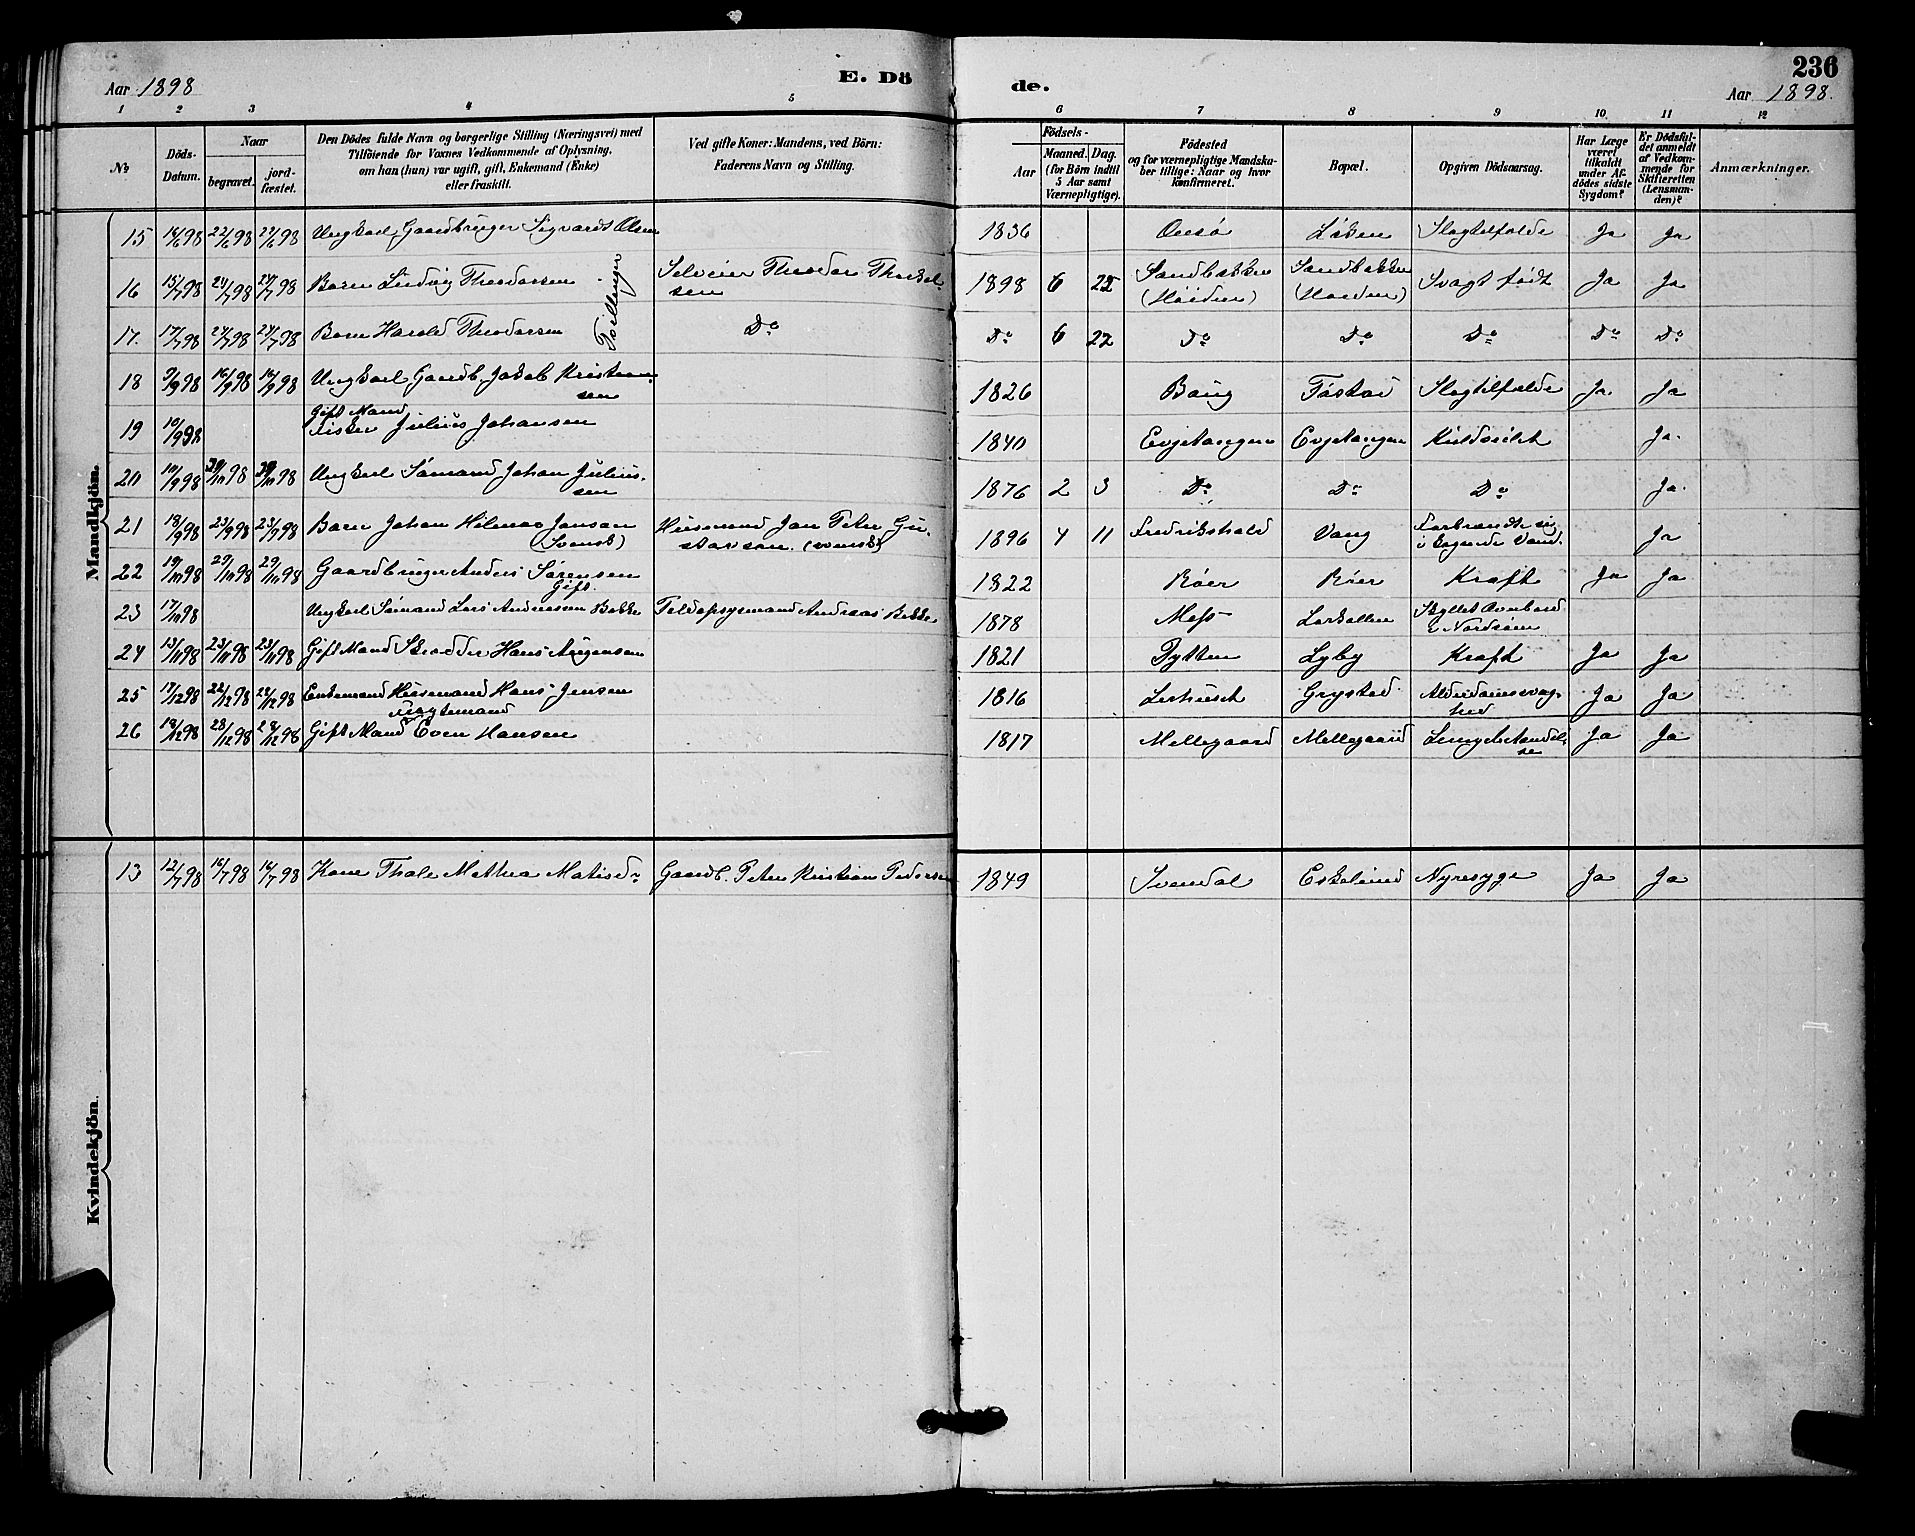 236
Aar 1898 E. Dö de. Aar 1898.
1 2 3 4 5 6 7 8 9 10 11 12
№
Döds-Datum.
Naar
begravet.
jord-fæstet.
Den Dödes fulde Navn og borgerlige Stilling (Næringsvei) med
Tilföiende for Voxnes Vedkommende af Oplysning,
om han (hun) var ugift, gift, Enkemand (Enke)
eller fraskilt.
Ved gifte Koner: Mandens, ved Börn:
Faderens Navn og Stilling.
Födsels-
Aar
Maaned. Dag.
(for Börn indtil
5 Aar samt
Værnepligtige).
Födested
og for værnepligtige Mandska-
ber tillige: Naar og hvor
konfirmeret.
Bopæl.
Opgiven Dödsaarsag.
Har Læge
været
tilkaldt
under Af-
dödes sidste
Sygdom?
Er Dödsfal-
det anmeldt
af Vedkom-
mende for
Skifteretten
(Lensman-
den)?
Anmærkninger.
Mandkjön.
15 16/6 98 22/6 98 22/6 98 Ungkarl Gaardbruger Sigvardt Olsen 1836 Onsö Löken Slagtilfælde Ja Ja
16 15/7 98 24/7 98 24/7 98 Barn Ludvig Theodorsen Tvillinger Selveier Theodor Thorkel-
sen 1898 6 22 Sandbakken
(Höiden) Sandbakken
(Höiden) Svagt födt Ja Ja
17. 17/7 98 24/7 98 24/7 98 Barn Harold Theodorsen Do Do 6 22 Do Do Do Do Do
18 9/9 98 16/9 98 16/9 98 Ungkarl Gaardb. Jakob Kristian-
sen 1826 Baug Tastad Slagtilfælde Ja Ja
19 10/9 98 Gift Mand
Fisker Julius Johansen 1840 Evjetangen Evjetangen Kuldseilet Ja.
20 10/9 98 98 98 Ungkarl Sømand Johan Julius-
sen 1876 2 3 Do Do Do Ja.
21 18/9 98 23/9 98 23/9 98 Barn Johan Hilmar Jansen
(Svensk) Husmand Jan Peter Gu-
stavson. (svensk) 1896 4 11 Fredrikshald Vang Forbrændte sig
i kogende Vand. Ja
22 19/10 98 29/10 98 29/10 98 Gaardbruger Anders Sørensen
Gift. 1822 Röer Röer Kraft Ja Ja
23 17/10 98 Ungkarl Sømand Lars Andreasen Bakke Feldopsysmand Andreas Bakke 1878 Moss Larkollen Skyllet Overbord
i Nordsöen
24 13/11 98 23/11 98 23/11 98 Gift Mand Skrædder Hans Jørgensen 1821 Pytten Lyby Kraft Ja Ja
25 17/12 98 22/12 98 22/12 98 Enkemand Husmand Hans Jensen 1816 Lerhuset Grystad Alderdomssvag-
hed Ja Ja
26 18/12 98 28/12 98 28/12 98 Gift Mand Even Hansen 1817 Mellegaard Mellegaard Ja Ja
Kvindekjön.
13 12/7 98 16/7 98 16/7 98 Kone Thale Mathea Matisdr Gaardb. Peter Kristian Pedersen 1849 Svendal Eskelund Nyresyge Ja Ja